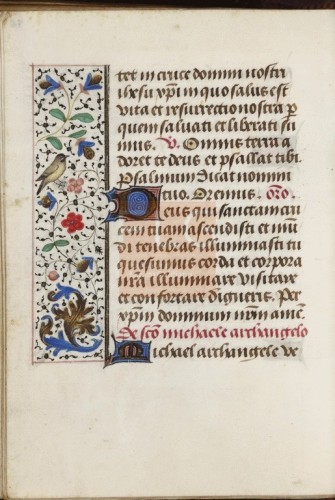 tet in cruce domini nostri
ihesu xpi in quo salus est
vita et resurrectio nostra p
quem saluati et liberati su
mus. V. Omnis terra a
doret te deus et psallat tibi
psalmum dicat nomini
tuo. Oremus. Oro.
Deus qui sanctam cru
cem tuam ascendisti et mu
di tenebras illuminasti tu
quesumus corda et corpora
nra illuminare visitare
et confortare digneris. Per
xpm dominum nrm ame.
De sco michaele archangelo
Michael archangele ve